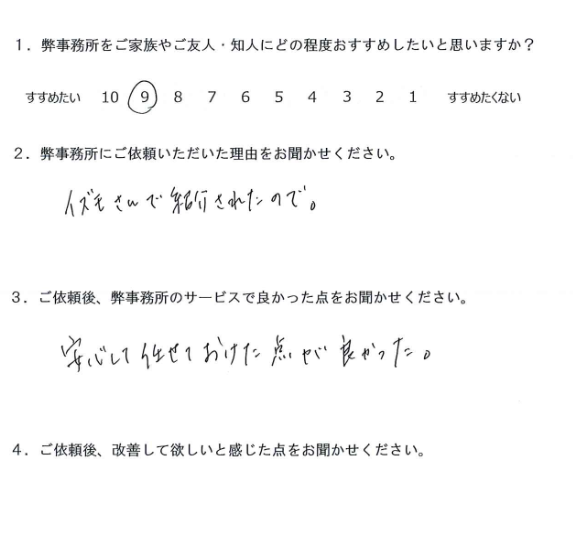 1．弊事務所をご家族やご友人・知人にどの程度おすすめしたいと思いますか？
すすめたい 10 9 8 7 6 5 4 3 2 1 すすめたくない
2．弊事務所にご依頼いただいた理由をお聞かせください。
イズモさんで紹介されたので。
3．ご依頼後、弊事務所のサービスで良かった点をお聞かせください。
安心して任せておけた点が良かった。
4．ご依頼後、改善して欲しいと感じた点をお聞かせください。